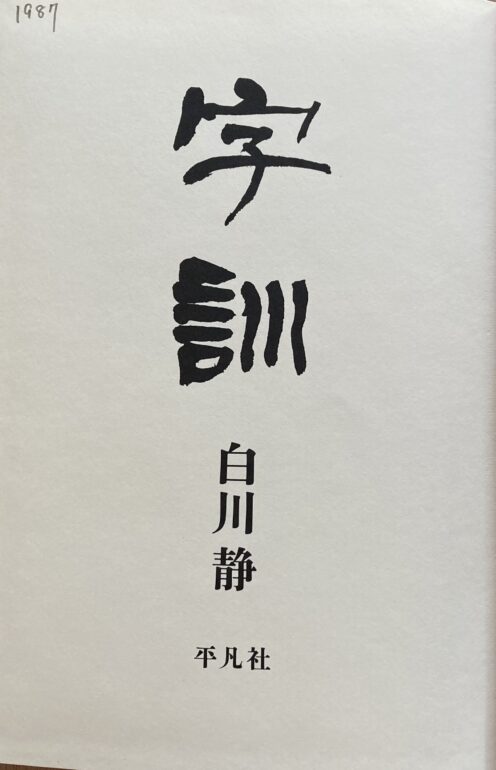 1987
字訓
白川静
平凡社